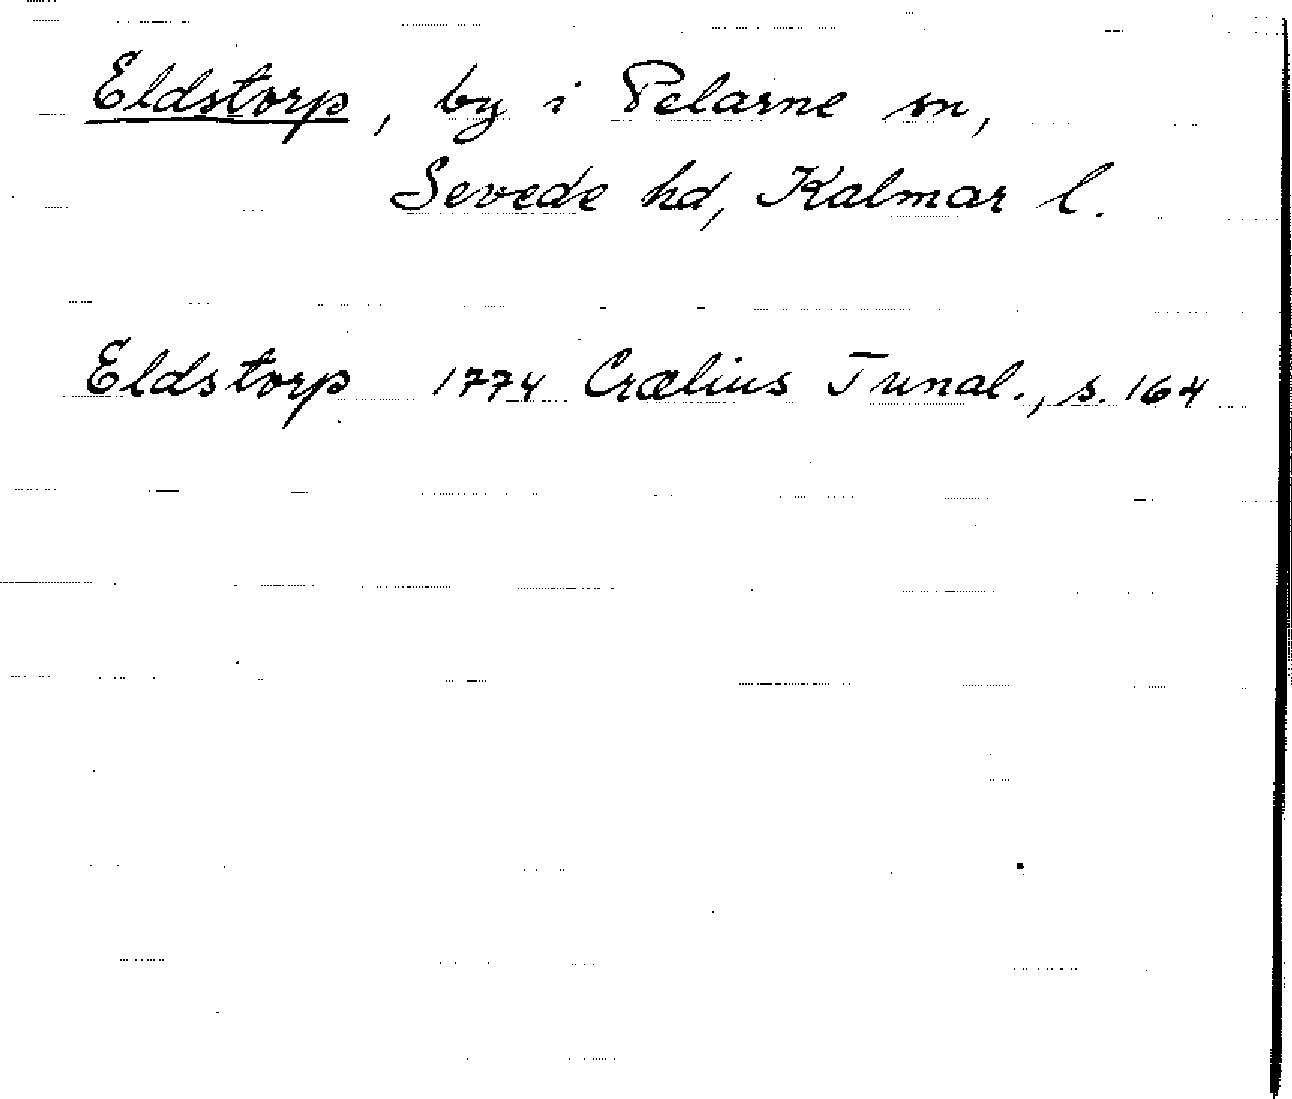 Eldstorp, by i Pelarne sn,
Sevede hd, Kalmar l.
Eldstorp 1774 Crælius Tunal., s. 164